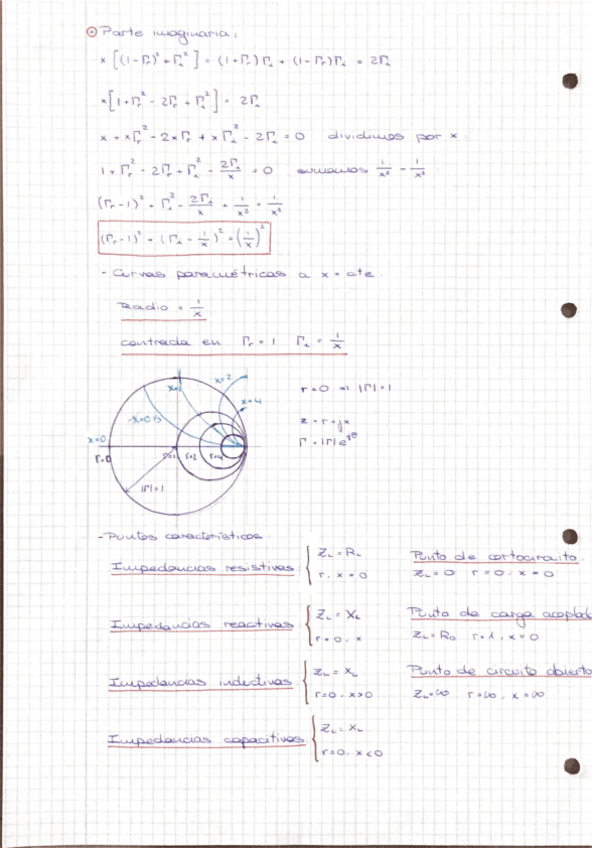 ⊙ Parte imaginaria:
x [(1-Γr)² + Γi²] = (1+Γr)Γi + (1-Γr)Γi = 2Γi
x[1+Γr² - 2Γr + Γi²] = 2Γi
x + xΓr² - 2xΓr + xΓi² - 2Γi = 0 dividimos por x
1 + Γr² - 2Γr + Γi² - 2Γi/x = 0 sumamos 1/x² - 1/x²
(Γr-1)² + Γi² - 2Γi/x + 1/x² = 1/x²
(Γr-1)² + (Γi - 1/x)² = (1/x)²
- Curvas paramétricas a x = cte.
Radio = 1/x
centrada en Γr = 1 Γi = 1/x
x=2
x=1
x=4
x=0.5
x=0
r=0
r=1 r=2 r=4
|Γ|=1
r=0 ⇒ |Γ|=1
z = r + jx
Γ = |Γ| e^jθ
- Puntos característicos
Impedancias resistivas { ZL = RL
r, x = 0
Punto de cortocircuito
ZL = 0 r = 0, x = 0
Impedancias reactivas { ZL = XL
r = 0, x
Punto de carga acoplada
ZL = R0 r = 1, x = 0
Impedancias inductivas { ZL = XL
r=0, x>0
Punto de circuito abierto
ZL = ∞ r = ∞, x = ∞
Impedancias capacitivas { ZL = XL
r=0, x<0